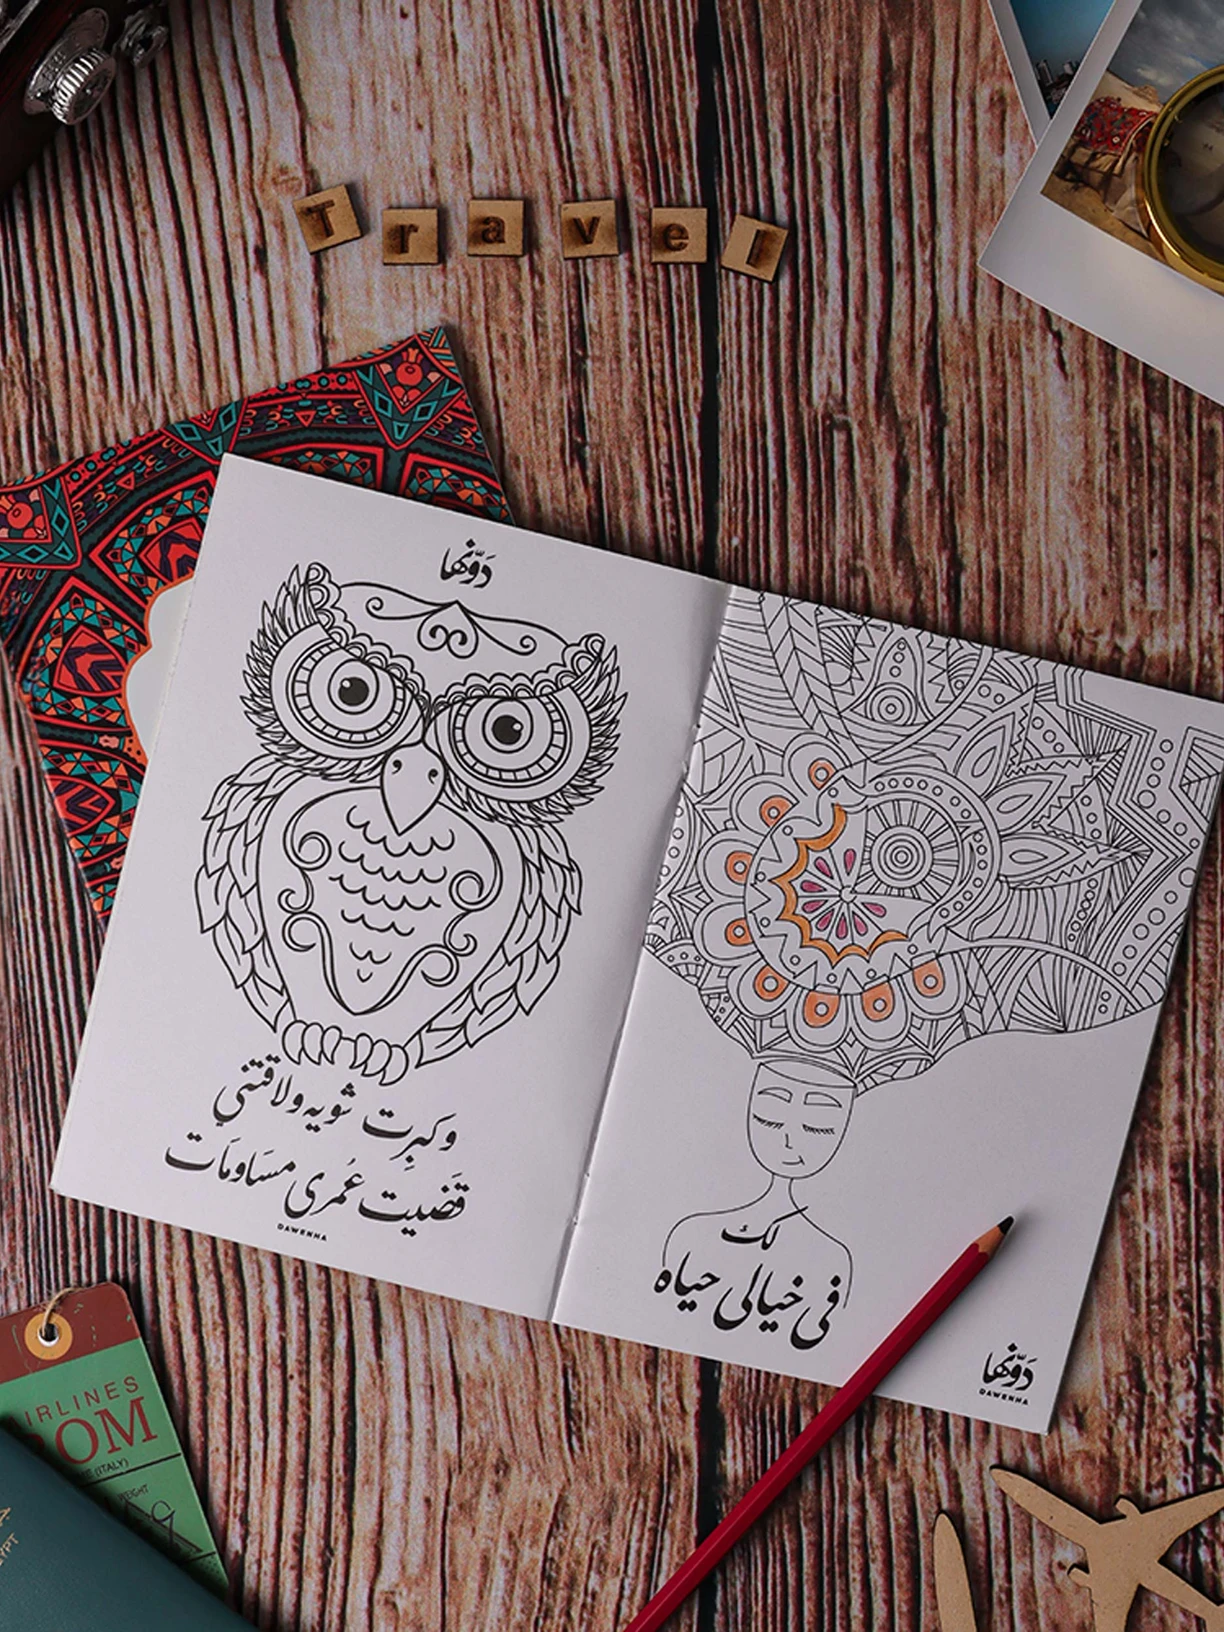 Travel
دَوِّنها
وكبرت شويه ولاقتني
قَضيت عُمري مسَاومَات
DAWENHA
لك
في خيالى حياه
دَوِّنها
DAWENHA
IRLINES
ROM
(ITALY)